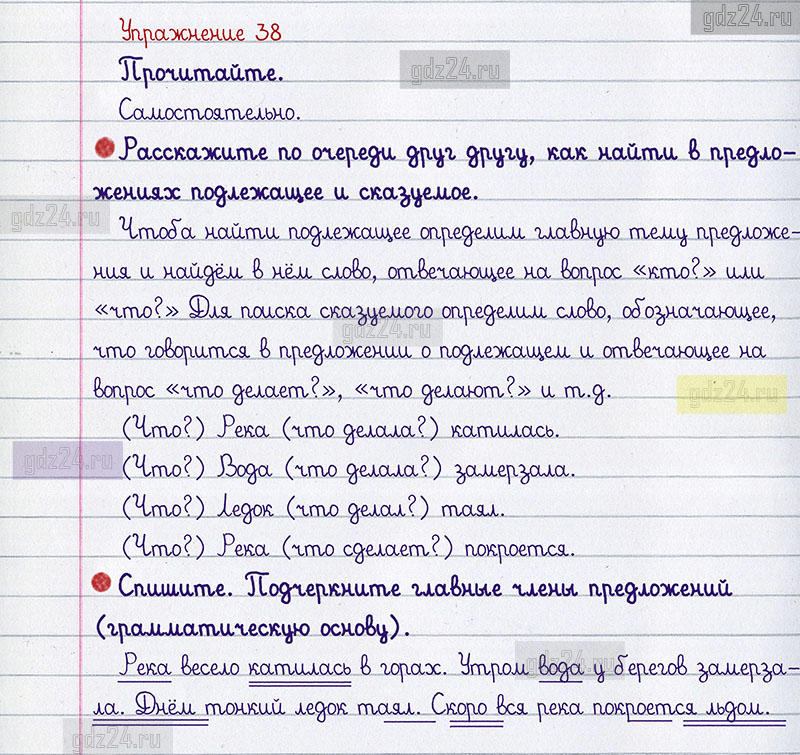 gdz24.ru
Упражнение 38
Прочитайте.
gdz24.ru
Самостоятельно.
Расскажите по очереди друг другу, как найти в предло-
жениях подлежащее и сказуемое.
gdz24.ru
Чтоба найти подлежащее определим главную тему предложе-
ния и найдём в нём слово, отвечающее на вопрос «кто?» или
«что?» Для поиска сказуемого определим слово, обозначающее,
gdz24.ru
что говорится в предложении о подлежащем и отвечающее на
вопрос «что делает?», «что делают?» и т.д.
gdz24.ru
(Что?) Река (что делала?) катилась.
gdz24.ru
(Что?) Вода (что делала?) замерзала.
(Что?) Ледок (что делал?) таял.
(Что?) Река (что сделает?) покроется.
Спишите. Подчеркните главные члены предложений
(грамматическую основу).
gdz24.ru
Река весело катилась в горах. Утром вода у берегов замерза-
ла. Днём тонкий ледок таял. Скоро вся река покроется льдом.
gdz24.ru